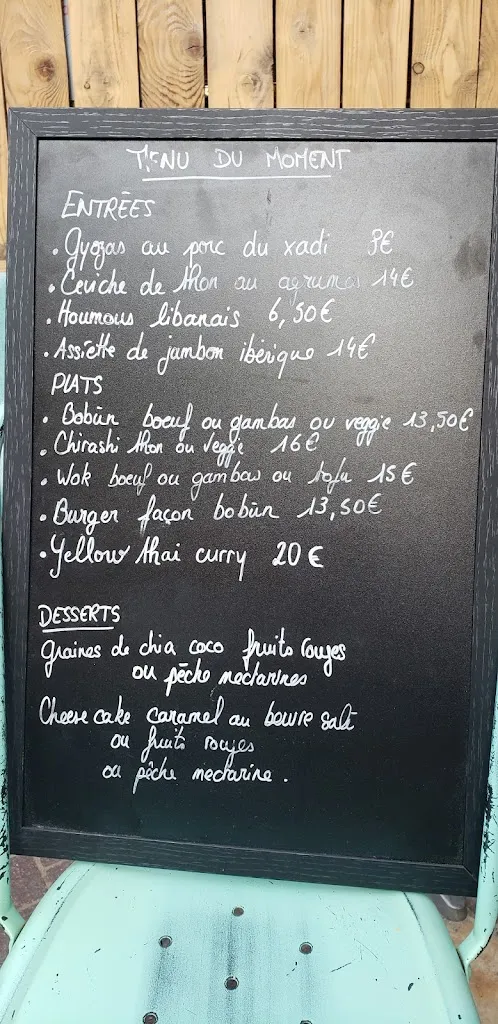 MENU DU MOMENT
ENTRÉES
. Gyozas au porc du xadi 9€
. Ceviche de thon au agrumes 14€
. Houmous libanais 6,50€
. Assiette de jambon ibérique 14€
PLATS
. Bobùn boeuf ou gambas ou veggie 13,50€
. Chirashi thon ou veggie 16€
. Wok boeuf ou gambas ou tofu 15€
. Burger façon bobùn 13,50€
. Yellow thai curry 20€
DESSERTS
graines de chia coco fruits rouges
ou pêche nectarines
Cheese cake caramel au beurre salé
ou fruits rouges
ou pêche nectarine.